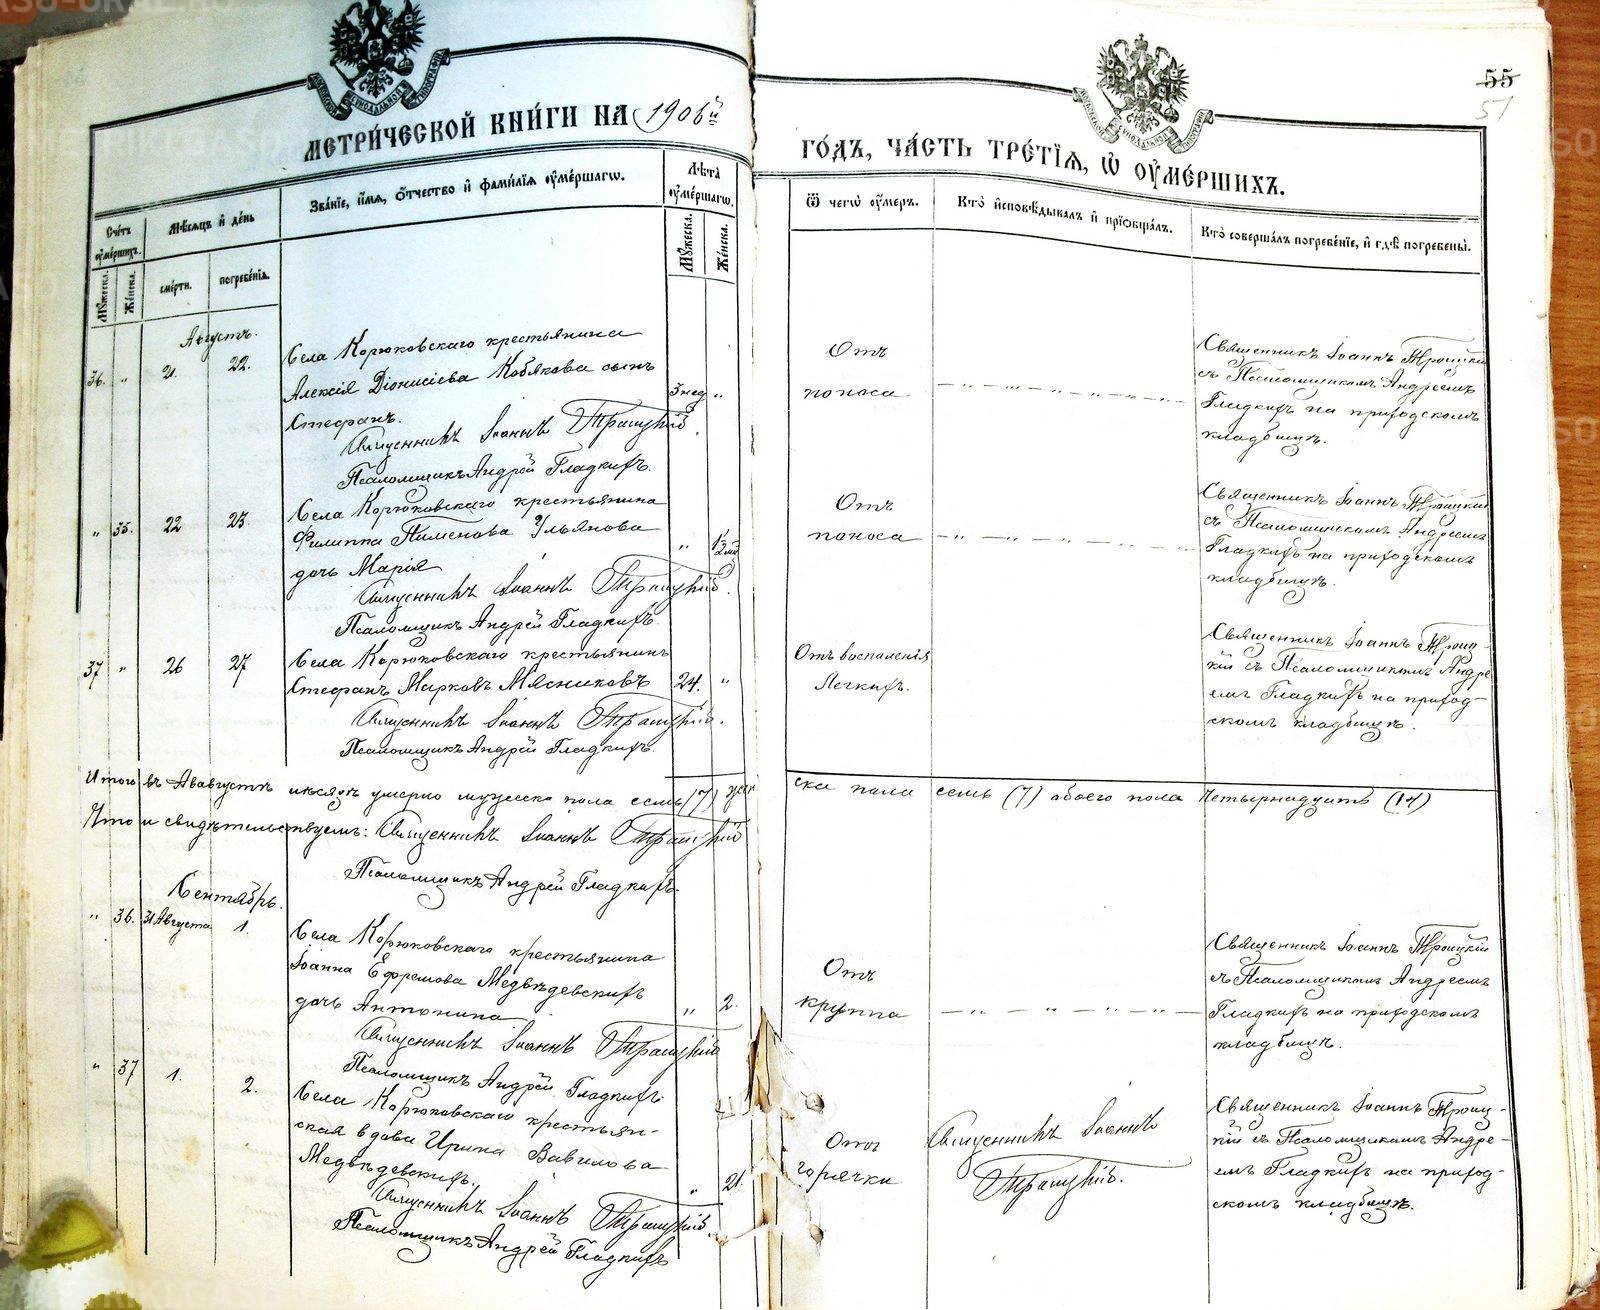 МЕТРИ́ЧЕСКОЙ КНИ́ГИ НА 1906й
ГО́ДЪ, ЧА́СТЬ ТРЕ́ТІѦ, Ѡ҆ ОУ҆МЕ́РШИХЪ.
55
51
Сче́тъ оу҆ме́ршихъ.
Мѣ́сѧцъ и҆ де́нь
Зва́нїе, и҆́мѧ, ѻ҆́тчество и҆ фами́лїѧ оу҆ме́ршагѡ.
Лѣ́та оу҆ме́ршагѡ.
Ѿ чегѡ̀ оу҆́меръ.
Кто̀ и҆сповѣ́дывалъ и҆ прїѡбща́лъ.
Кто̀ соверша́лъ погребе́нїе, и҆ гдѣ̀ погребены̀.
Мꙋ́жеска.
Же́нска.
сме́рти.
погребе́нїѧ.
Мꙋ́жеска.
Же́нска.
Августъ.
36. " 21. 22.
Села Корюковскаго крестьянина
Алексія Діонисіева Кобякова сынъ
Стефанъ.
3 нед "
Священникъ Іоаннъ Троицкій
Псаломщикъ Андрей Гладкихъ.
Отъ
поноса
Священникъ Іоаннъ Троицкій
съ Псаломщикомъ Андреемъ
Гладкихъ на приходскомъ
кладбищѣ.
" 35. 22 23.
Села Корюковскаго крестьянина
Филиппа Пименова Ульянова
дочь Марія
"
Священникъ Іоаннъ Троицкій.
Псаломщикъ Андрей Гладкихъ.
Отъ
поноса
Священникъ Іоаннъ Троицкій
съ Псаломщикомъ Андреемъ
Гладкихъ на приходскомъ
кладбищѣ.
37 " 26 27
Села Корюковскаго крестьянинъ
Стефанъ Марковъ Мясниковъ
24. "
Священникъ Іоаннъ Троицкій.
Псаломщикъ Андрей Гладкихъ.
Отъ воспаленія
Легкихъ.
Священникъ Іоаннъ Троиц-
кій съ Псаломщикомъ Андре
емъ Гладкихъ на приход-
скомъ кладбищѣ.
Итого въ Ававгустѣ мѣсяцѣ умерло мужеска пола семь (7) жен
ска пола семь (7) обоего пола Четырнадцать (14)
Что и свидѣтельствуемъ: Священникъ Іоаннъ Троицкій
Псаломщикъ Андрей Гладкихъ.
Сентябрь.
" 36. 31 Августа 1.
Села Корюковскаго крестьянина
Іоанна Ефремова Медвѣдевскихъ
дочь Антонина
" 2.
Священникъ Іоаннъ Троицкій
Псаломщикъ Андрей Гладкихъ
Отъ
круппа
Священникъ Іоаннъ Троицкій
съ Псаломщикомъ Андреемъ
Гладкихъ на приходскомъ
кладбищѣ.
" 37 1. 2.
Села Корюковскаго крестьян-
ская вдова Ирина Вавилова
Медвѣдевскихъ.
"
Священникъ Іоаннъ Троицкій.
Псаломщикъ Андрей Гладкихъ
Отъ
горячки
Священникъ Іоаннъ
Троицкій.
Священникъ Іоаннъ Троиц-
кій съ Псаломщикомъ Андре-
емъ Гладкихъ на приход-
скомъ кладбищѣ.